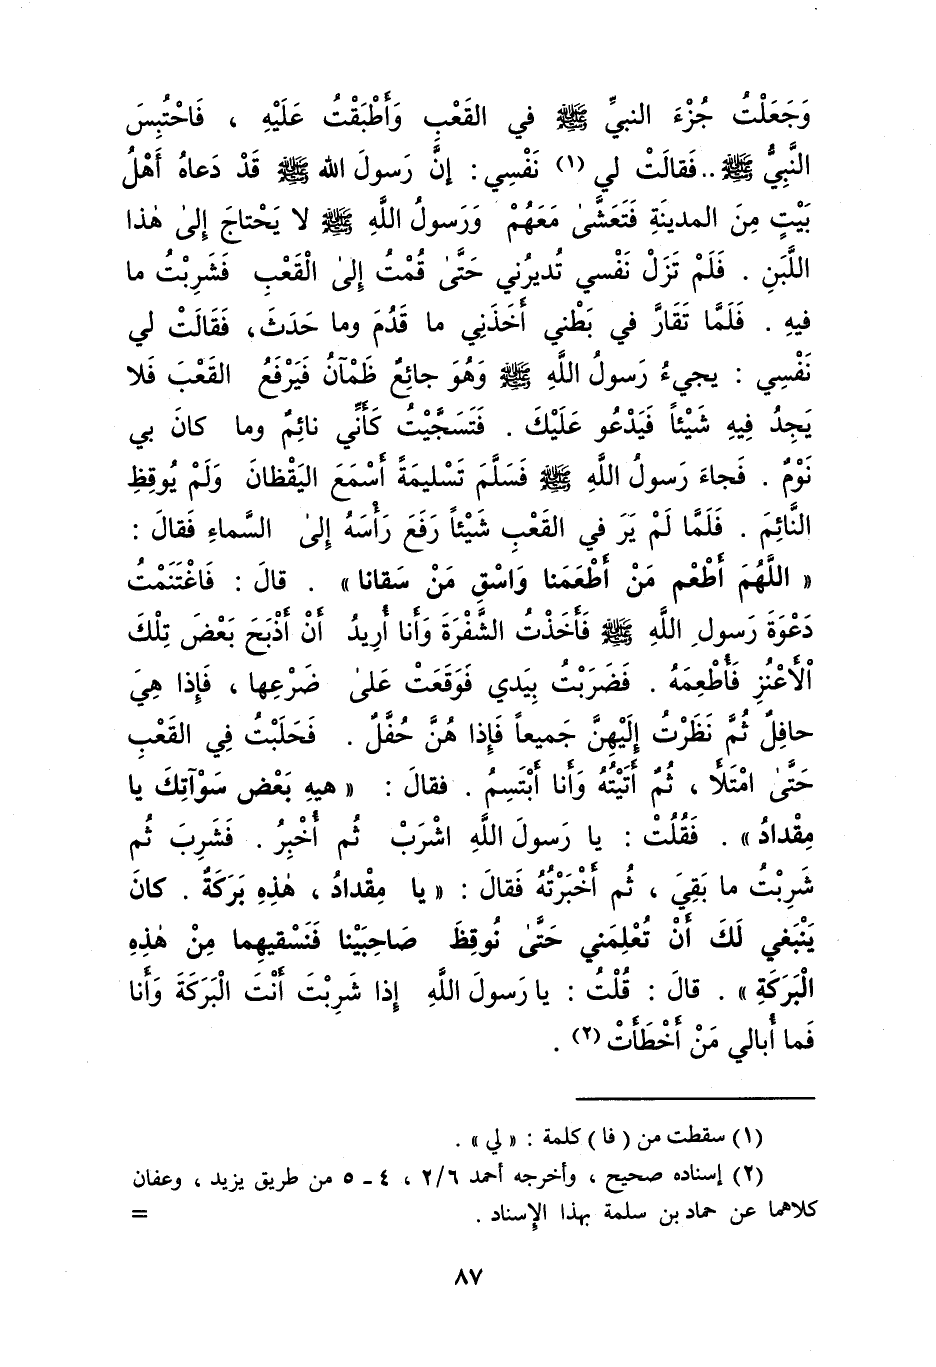 وَجَعَلْتُ جُزْءَ النبيِّ ﷺ في القَعْبِ وَأَطْبَقْتُ عَلَيْهِ ، فَاحْتُبِسَ
النَّبِيُّ ﷺ .. فَقالَتْ لي (١) نَفْسِي : إنَّ رَسولَ الله ﷺ قَدْ دَعاهُ أَهْلُ
بَيْتٍ مِنَ المدينَةِ فَتَعَشَّىٰ مَعَهُمْ وَرَسولُ اللَّهِ ﷺ لا يَحْتاجَ إِلىٰ هٰذا
اللَّبَنِ . فَلَمْ تَزَلْ نَفْسي تُديرُني حَتَّىٰ قُمْتُ إِلىٰ الْقَعْبِ فَشَرِبْتُ ما
فيهِ . فَلَمَّا تَقَارَّ في بَطْني أَخَذَنِي ما قَدُمَ وما حَدَثَ ، فَقَالَتْ لي
نَفْسِي : يجيءُ رَسولُ اللَّهِ ﷺ وَهُوَ جائِعٌ ظَمْآنُ فَيَرْفَعُ القَعْبَ فَلا
يَجِدُ فِيهِ شَيْئاً فَيَدْعُو عَلَيْكَ . فَتَسَجَّيْتُ كَأَنِّي نائِمٌ وما كانَ بي
نَوْمٌ . فَجاءَ رَسولُ اللَّهِ ﷺ فَسَلَّمَ تَسْليمَةً أَسْمَعَ اليَقْظانَ وَلَمْ يُوقِظِ
النَّائِمَ . فَلَمَّا لَمْ يَرَ في القَعْبِ شَيْئاً رَفَعَ رَأْسَهُ إِلىٰ السَّماءِ فَقالَ :
« اللَّهُمَ أَطْعْم مَنْ أَطْعَمَنا وَاسْقِ مَنْ سَقانا » . قالَ : فَاغْتَنَمْتُ
دَعْوَةَ رَسولِ اللَّهِ ﷺ فَأَخَذْتُ الشَّفْرَةَ وَأَنا أُرِيدُ أَنْ أَذْبَحَ بَعْضَ تِلْكَ
الْأَعْنُزِ فَأُطْعِمَهُ . فَضَرَبْتُ بِيَدي فَوَقَعَتْ عَلىٰ ضَرْعِها ، فَإِذا هِيَ
حافِلٌ ثُمَّ نَظَرْتُ إِلَيْهِنَّ جَميعاً فَإِذا هُنَّ حُفَّلٌ . فَحَلَبْتُ فِي القَعْبِ
حَتَّىٰ امْتَلَأَ ، ثُمَّ أَتَيْتُهُ وَأَنا أَبْتَسِمُ . فقالَ : « هيهِ بَعْض سَوْآتِكَ يا
مِقْدادُ » . فَقُلْتُ : يا رَسولَ اللَّهِ اشْرَبْ ثُم أُخْبِرُ . فَشَرِبَ ثُم
شَرِبْتُ ما بَقِيَ ، ثُم أَخْبَرْتُهُ فَقالَ : « يا مِقْدادُ ، هٰذِهِ بَرَكَةٌ . كانَ
يَنْبَغي لَكَ أَنْ تُعْلِمَني حَتَّىٰ نُوقِظَ صَاحِبَيْنا فَنَسْقيهِما مِنْ هٰذِهِ
الْبَرَكَةِ » . قالَ : قُلْتُ : يا رَسولَ اللَّهِ إِذا شَرِبْتَ أَنْتَ الْبَرَكَةَ وَأَنا
فَما أُبالي مَنْ أَخْطَأَتْ (٢) .
(١) سقطت من ( فا ) كلمة : « لي » .
(٢) إسناده صحيح ، وأخرجه أحمد ٢/٦ ، ٤ ـ ٥ من طريق يزيد ، وعفان
كلاهما عن حماد بن سلمة بهذا الإسناد . =
٨٧